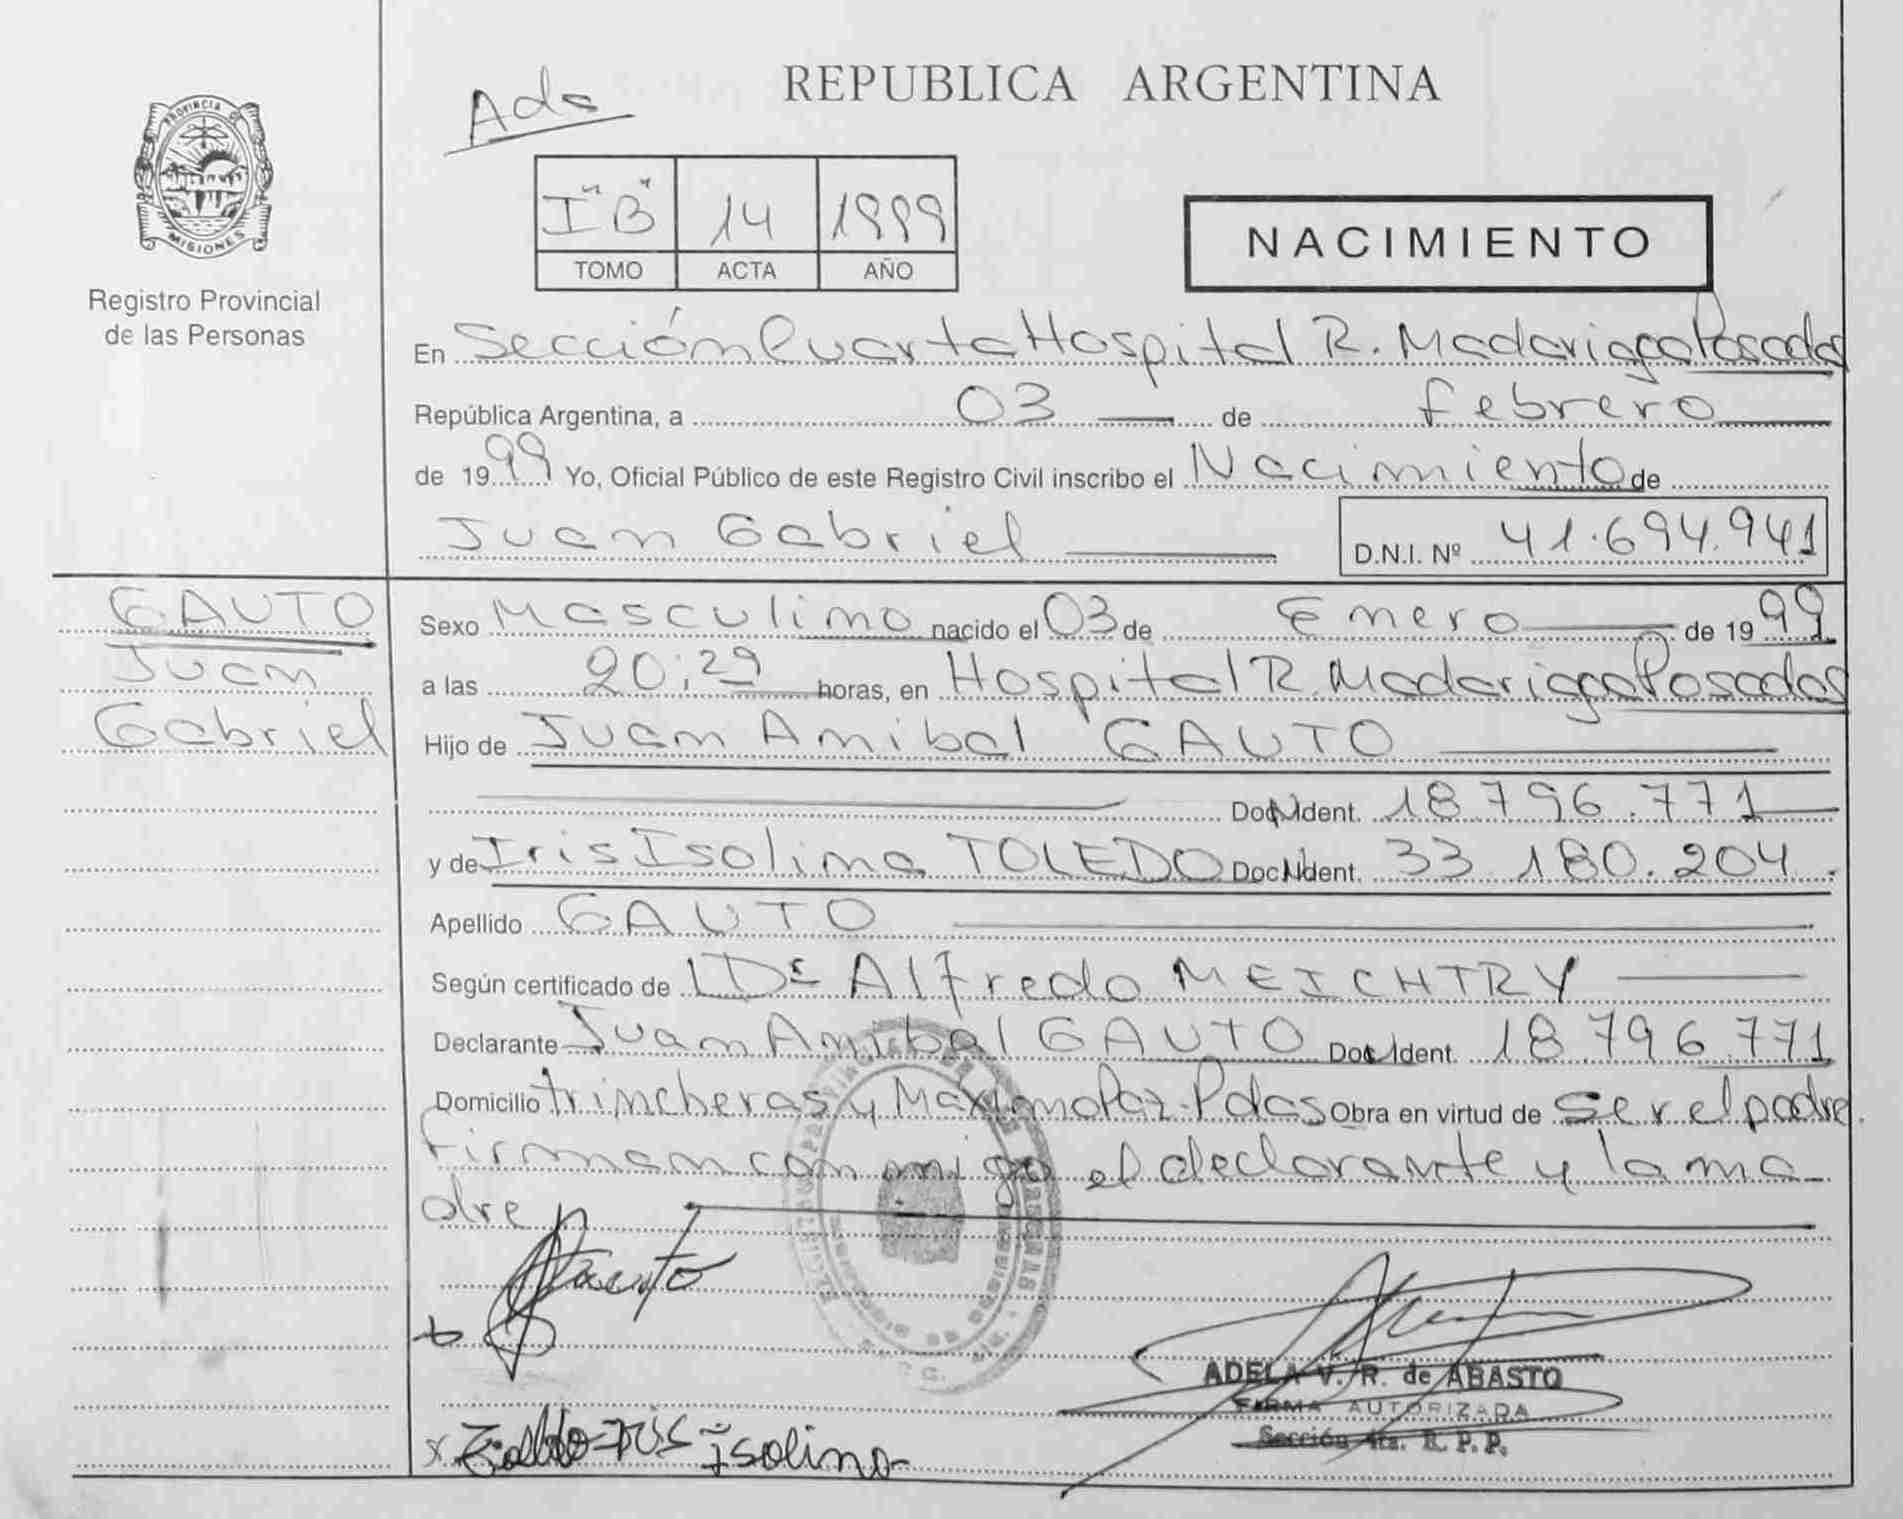 REPUBLICA ARGENTINA
Ads
PROVINCIA DE
MISIONES
Registro Provincial
de las Personas
I "B" 14 1999
TOMO ACTA AÑO
NACIMIENTO
En Sección Cuarta Hospital R. Madariaga Posadas
República Argentina, a 03 de febrero
de 1999 Yo, Oficial Público de este Registro Civil inscribo el Nacimiento de
Juan Gabriel
D.N.I. Nº 41.694.941
GAUTO
Juan
Gabriel
Sexo Masculino nacido el 03 de Enero de 1999
a las 20:29 horas, en Hospital R. Madariaga Posadas
Hijo de Juan Anibal GAUTO
Doc. Ident. 18.796.771
y de Iris Isolina TOLEDO Doc. Ident. 33.180.204.
Apellido GAUTO
Según certificado de Dr Alfredo MEICHTRY
Declarante Juan Anibal GAUTO Doc. Ident. 18.796.771
Domicilio trincheras y Máximo Paz-Pdas Obra en virtud de ser el padre.
Firman conmigo el declarante y la ma
dre
Gauto
ADELA V. R. de ABASTO
FIRMA AUTORIZADA
Sección 4ta. R. P. P.
x Toledo Iris Isolina